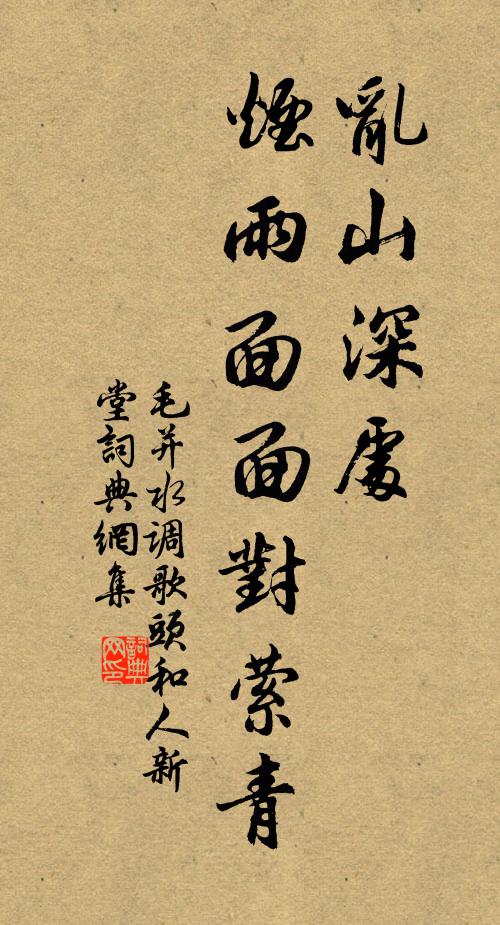 亂山深處
煙雨面面對縈青
毛并水调歌頭和人新
堂詞典網集
詞典
网印